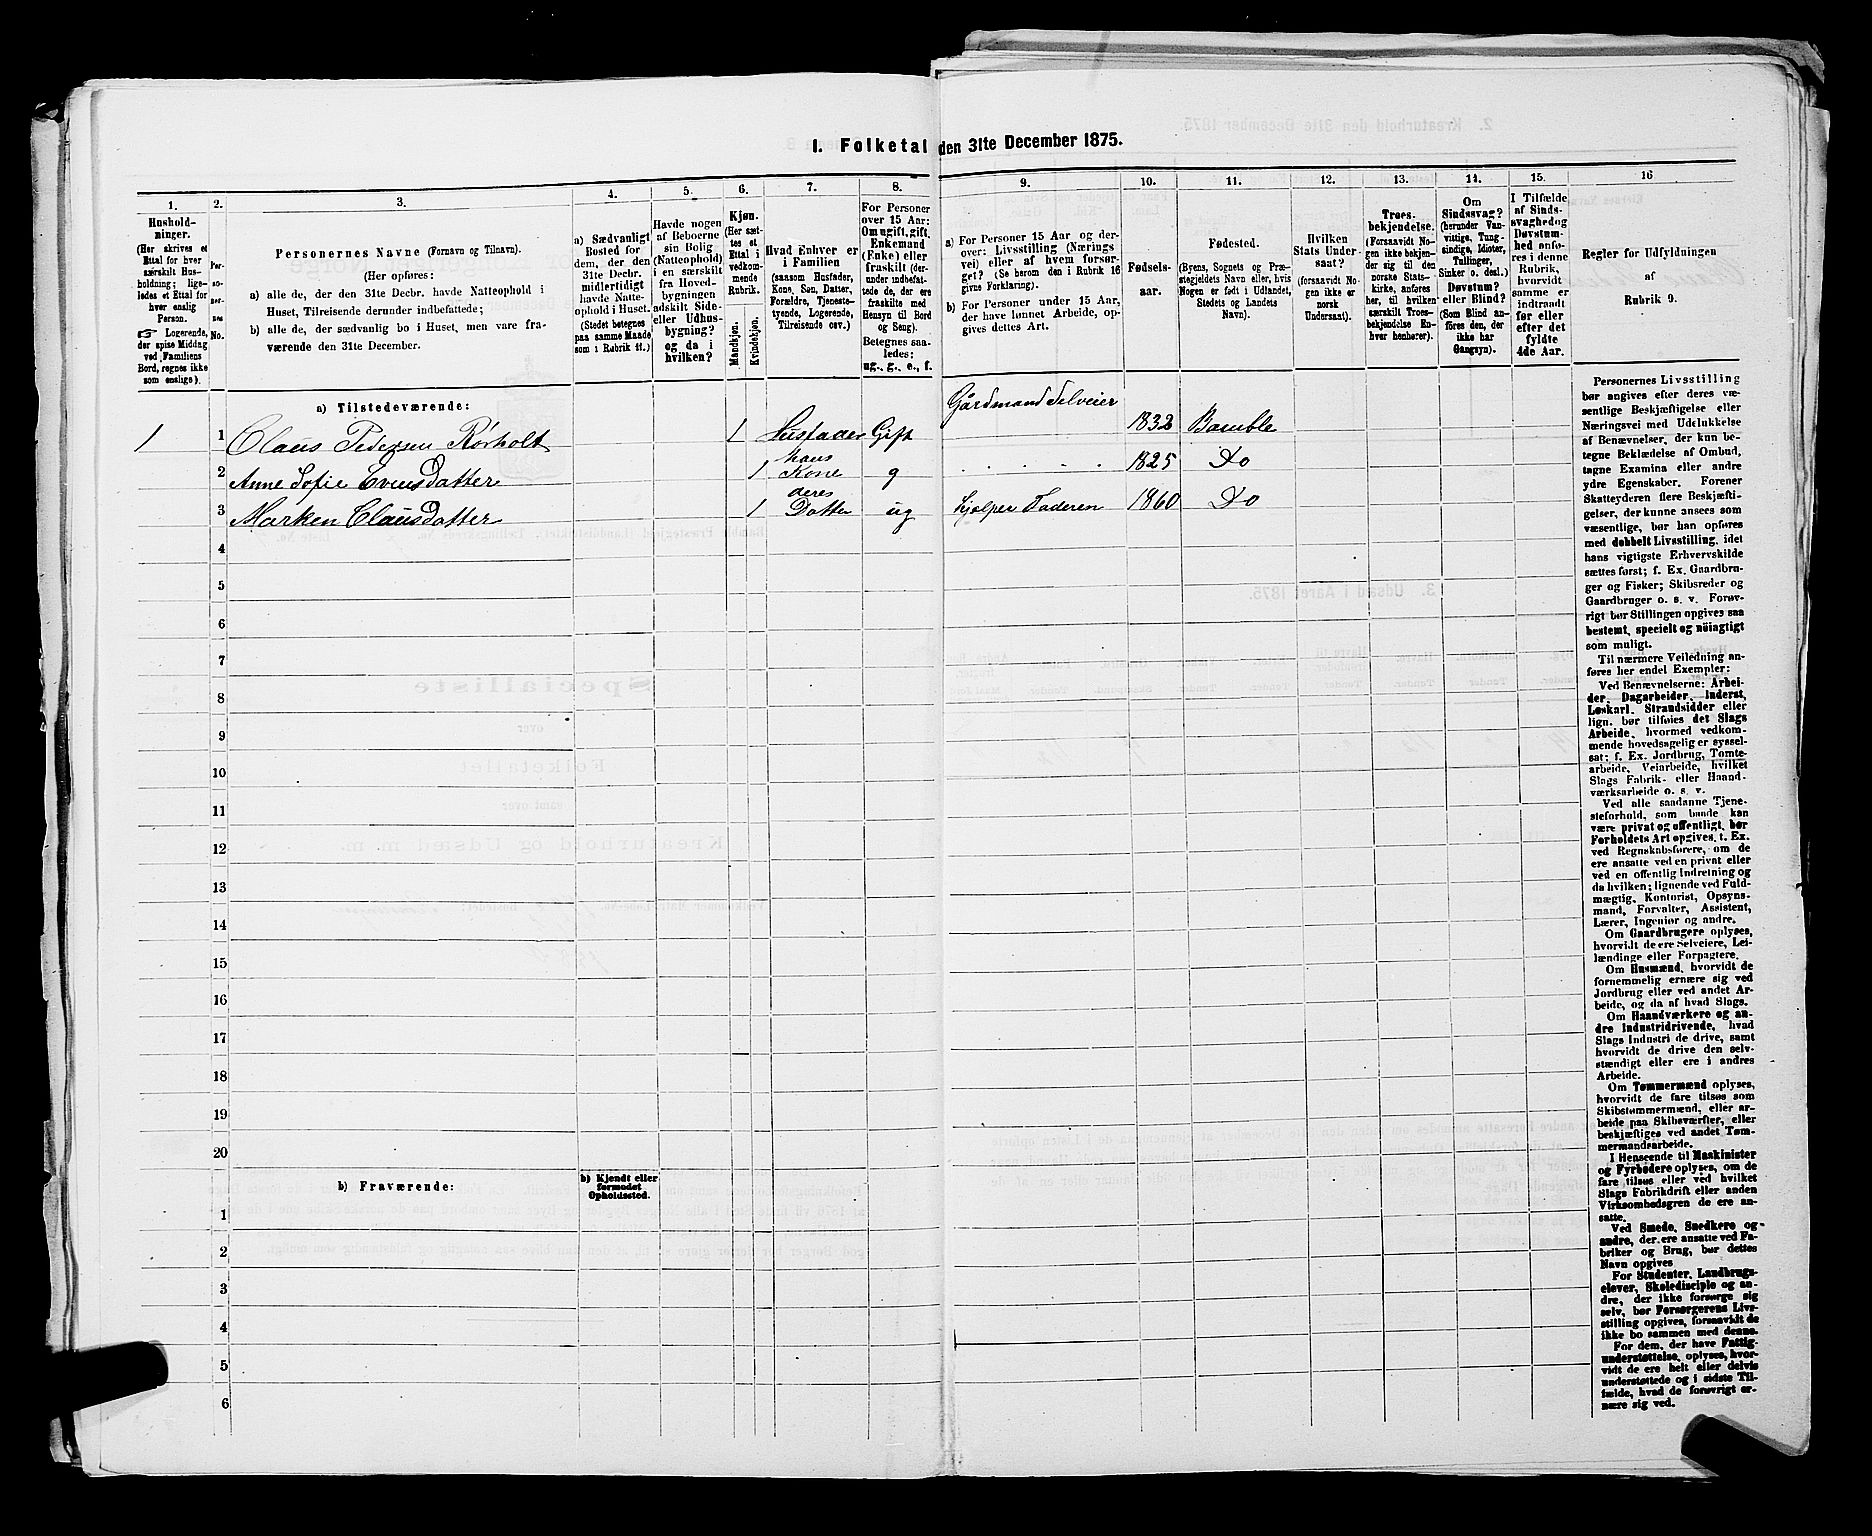 I. Folketal den 31te December 1875.
1.
2.
3.
4.
5.
6.
7.
8.
9.
10.
11.
12.
13.
14.
15.
16
Hushold-
ninger.
(Her skrives et
Ettal for hver
særskilt Hus-
holdning; lige-
ledes et Ettal for
hver enslig
Person.
☞ Logerende,
der spise Middag
ved Familiens
Bord, regnes ikke
som enslige).
Per-
so-
ner-
nes
No.
Personernes Navne (Fornavn og Tilnavn).
(Her opføres:
a) alle de, der den 31te Decbr. havde Natteophold i
Huset, Tilreisende derunder indbefattede;
b) alle de, der sædvanlig bo i Huset, men vare fra-
værende den 31te December.
a) Sædvanligt
Bosted for
dem, der den
31te Decbr.
midlertidigt
havde Natte-
ophold i Huset.
(Stedet betegnes
paa samme Maade
som i Rubrik 11.)
Havde nogen
af Beboerne
sin Bolig
(Natteophold)
i en særskilt
fra Hoved-
bygningen
adskilt Side-
eller Udhus-
bygning?
og da i
hvilken?
Kjøn.
(Her sæt-
tes et
Ettal i
vedkom-
mende
Rubrik.
Mandkjøn.
Kvindekjøn.
Hvad Enhver er
i Familien
(saasom Husfader,
Kone, Søn, Datter,
Forældre, Tjeneste-
tyende, Logerende,
Tilreisende osv.)
For Personer
over 15 Aar:
Om ugift, gift,
Enkemand
(Enke) eller
fraskilt (der-
under indbefat-
tede de, der ere
fraskilte med
Hensyn til Bord
og Seng).
Betegnes saa-
ledes:
ug., g., e., f.
a) For Personer 15 Aar og der-
over: Livsstilling (Nærings-
vei) eller af hvem forsør-
get? (Se herom den i Rubrik 16
givne Forklaring).
b) For Personer under 15 Aar,
der have lønnet Arbeide, op-
gives dettes Art.
Fødsels-
aar.
Fødested.
(Byens, Sognets og Præ-
stegjeldets Navn eller, hvis
Nogen er født i Udlandet,
Stedets og Landets
Navn).
Hvilken
Stats Under-
saat?
(forsaavidt No-
gen ikke er
norsk
Undersaat).
Troes-
bekjendelse.
(Forsaavidt No-
gen ikke bekjen-
der sig til den
norske Stats-
kirke, anføres
her, til hvilken
særskilt Troes-
bekjendelse En-
hver henhører).
Om
Sindssvag?
(herunder Van-
vittige, Tung-
sindige, Idioter,
Tullinger,
Sinker o. desl.)
Døvstum?
eller Blind?
(Som Blind an-
føres den, der
ikke har
Gangsyn).
I Tilfælde
af Sinds-
svaghed og
Døvstum-
hed anfø-
res i denne
Rubrik,
hvorvidt
samme er
indtraadt
før eller
efter det
fyldte
4de Aar.
Regler for Udfyldningen
af
Rubrik 9.
a) Tilstedeværende:
Gårdmand Selveier
1 1 Claus Pedersen Rørholt 1 Husfader Gift 1832 Bamble
2 Anne Sofie Evensdatter 1 hans Kone g 1825 Do
3 Marken Clausdatter 1 deres Datter ug hjælper Faderen 1860 Do
4
5
6
7
8
9
10
11
12
13
14
15
16
17
18
19
20
b) Fraværende:
b) Kjendt eller
formodet
Opholdssted.
1
2
3
4
5
6
Personernes Livsstilling
bør angives efter deres væ-
sentlige Beskjæftigelse eller
Næringsvei med Udelukkelse
af Benævnelser, der kun be-
tegne Beklædelse af Ombud,
tagne Examina eller andre
ydre Egenskaber. Forener
Skatteyderen flere Beskjæfti-
gelser, der kunne ansees som
væsentlige, bør han opføres
med dobbelt Livsstilling, idet
hans vigtigste Erhvervskilde
sættes først; f. Ex. Gaardbru-
ger og Fisker; Skibsreder og
Gaardbruger o. s. v. Forøv-
rigt bør Stillingen opgives saa
bestemt, specielt og nøiagtigt
som muligt.
Til nærmere Veiledning an-
føres her endel Exempler:
Ved Benævnelserne: Arbei-
der, Dagarbeider, Inderst,
Løskarl, Strandsidder eller
lign. bør tilføies det Slags
Arbeide, hvormed vedkom-
mende hovedsagelig er syssel-
sat; f. Ex. Jordbrug, Tomte-
arbeide, Veiarbeide, hvilket
Slags Fabrik- eller Haand-
værksarbeide o. s. v.
Ved alle saadanne Tjene-
steforhold, som baade kan
være privat og offentligt, bør
Forholdets Art opgives, t. Ex.
ved Regnskabsførere, om de
ere ansatte ved en privat eller
ved en offentlig Indretning og
da hvilken; lignende ved Fuld-
mægtig, Kontorist, Opsyns-
mand, Forvalter, Assistent,
Lærer, Ingeniør og andre.
Om Gaardbrugere oplyses,
hvorvidt de ere Selveiere, Lei-
lændinge eller Forpagtere.
Om Husmænd, hvorvidt de
fornemmelig ernære sig ved
Jordbrug eller ved andet Ar-
beide, og da af hvad Slags.
Om Haandværkere og an-
dre Industridrivende, hvad
Slags Industri de drive, samt
hvorvidt de drive den selv-
stændigt eller ere i andres
Arbeide.
Om Tømmermænd oplyses,
hvorvidt de fare tilsøs som
Skibstømmermænd, eller ar-
beide paa Skibsværfter, eller
beskjæftiges ved andet Tøm-
mermandsarbeide.
I Henseende til Maskinister
og Fyrbødere oplyses, om de
fare tilsøs eller ved hvilket
Slags Fabrikdrift eller anden
Virksomhedsgren de ere an-
satte.
Ved Smede, Snedkere og
andre, der ere ansatte ved Fa-
briker og Brug, bør dettes
Navn opgives
For Studenter, Landbrugs-
elever, Skoledisciple og an-
dre, der ikke forsørge sig
selv, bør Forsørgerens Livs-
stilling opgives, forsaavidt de
ikke bo sammen med denne.
For dem, der have Fattig-
understøttelse, oplyses, hvor-
vidt de ere helt eller delvis
understøttede og i sidste Til-
fælde, hvad de forøvrigt er-
nære sig ved.